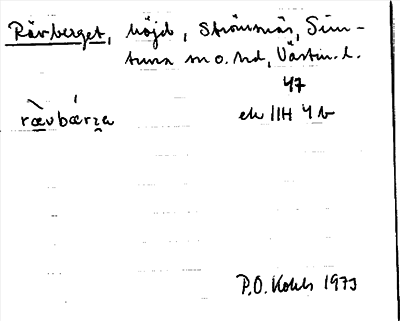 Rävberget, höjd, Strömsnäs, Sim-
tuna sn o. hd, Västm. l.
47
rævbærza ek 11H 4 b
P.O. Kohls 1973